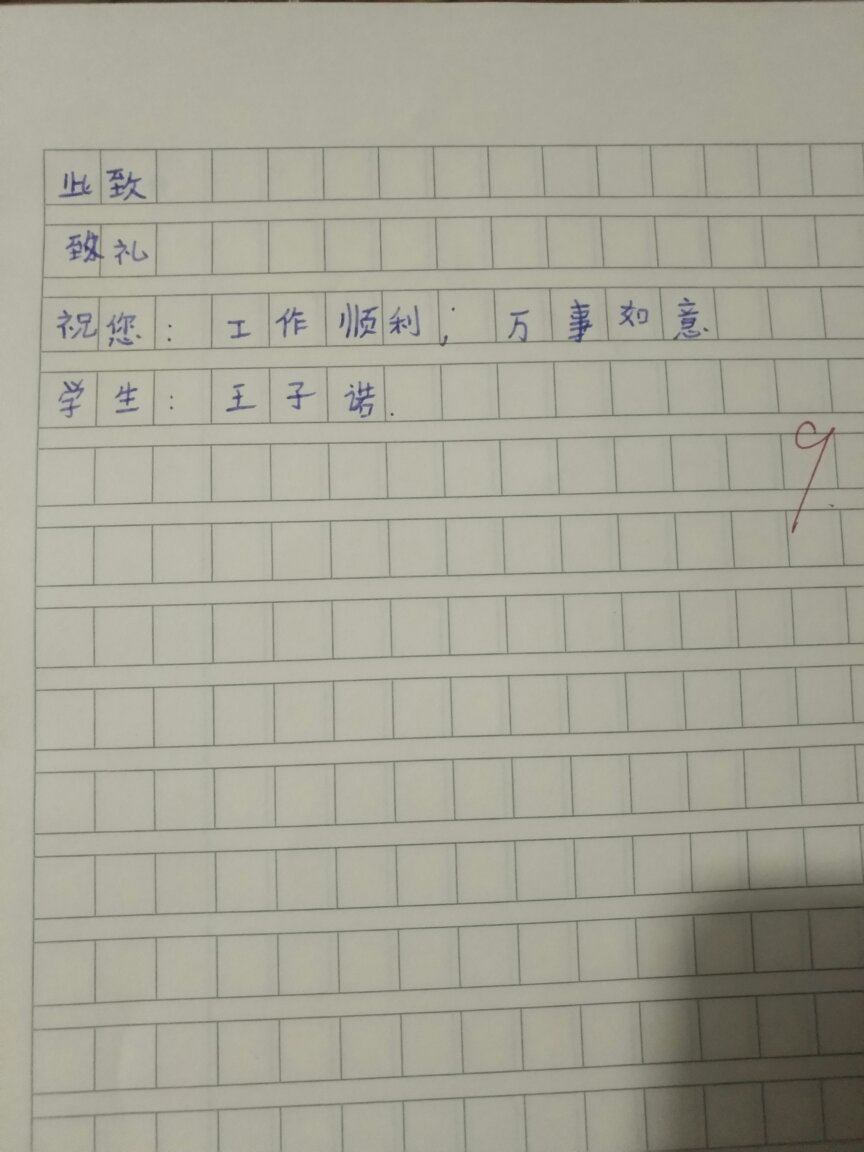 此致
致礼
祝您：工作顺利；万事如意
学生：王子诺.
9